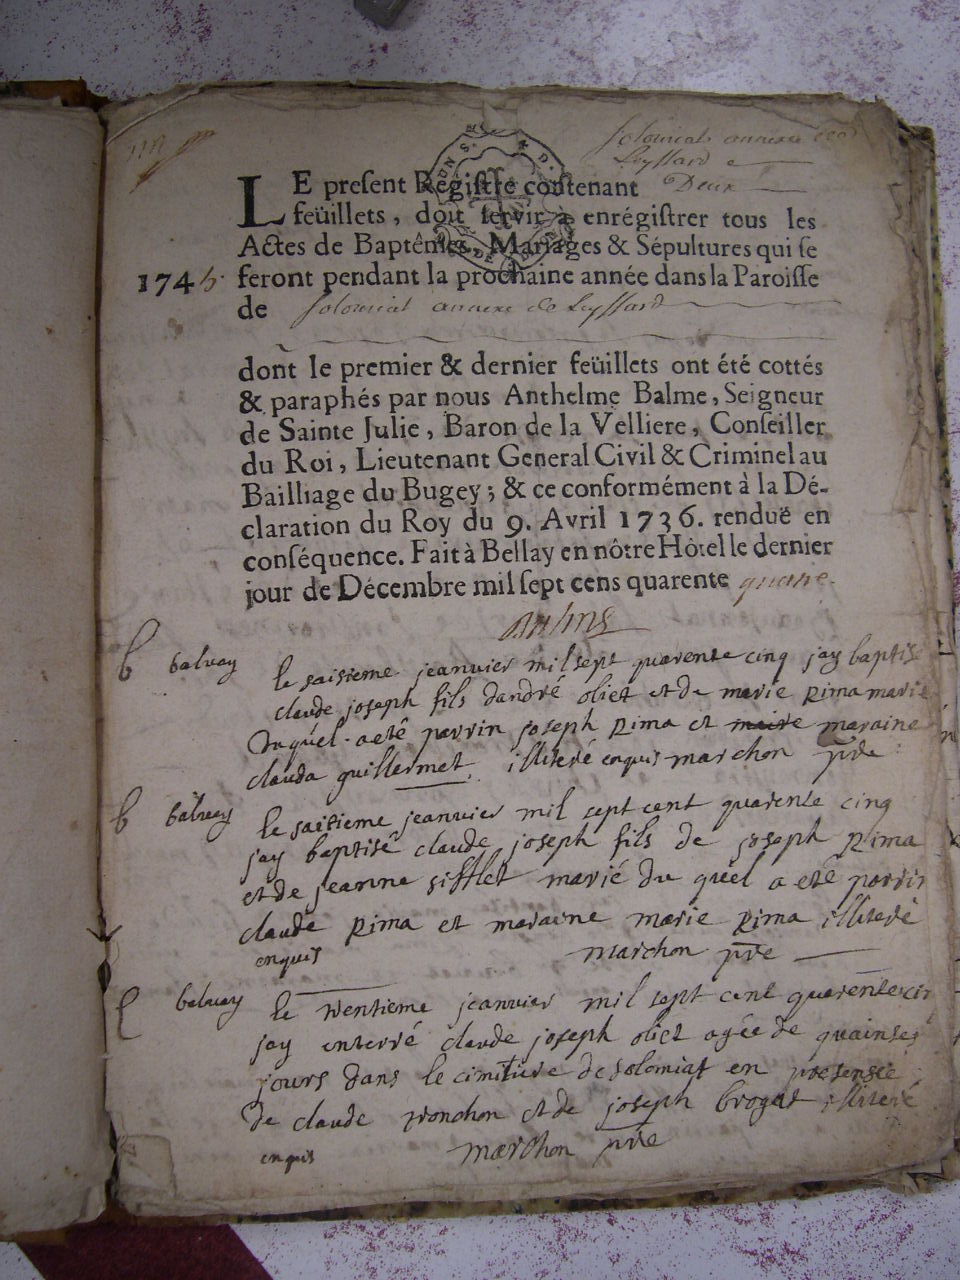 Solomiat annexe de
Leyssard
LE preſent Regiſtre contenant Deux
feüillets, doit ſervir à enrégiſtrer tous les
Actes de Baptêmes, Mariages & Sépultures qui ſe
1745. feront pendant la prochaine année dans la Paroiſſe
de Solomiat annexe de Leyssard
dont le premier & dernier feüillets ont été cottés
& paraphés par nous Anthelme Balme, Seigneur
de Sainte Julie, Baron de la Velliere, Conſeiller
du Roi, Lieutenant General Civil & Criminel au
Bailliage du Bugey; & ce conformément à la Dé-
claration du Roy du 9. Avril 1736. renduë en
conſéquence. Fait à Bellay en nôtre Hôtel le dernier
jour de Décembre mil ſept cens quarente quatre.
Balme
b balvay le saisieme jeanvier mil sept quarente cinq jay baptisé
claude joseph fils dandré obiet et de marie pima marié
duquel a eté parrin joseph pima et maire maraine
clauda guillermet illiteré enquis marchon ptre
b balvay le saitieme jeanvier mil sept cent quarente cinq
jay baptisé claude joseph fils de joseph pima
et de jeanne sifflet marié du quel a eté parrin
claude pima et maraine marie pima illiteré
enquis marchon ptre
balvay le ventieme jeanvier mil sept cent quarente cin
jay enterré claude joseph obiet agée de quainses
jours dans le cimitiere de solomiat en presensce
de claude tronchon et de joseph brogat illiteré
enquis marchon ptre